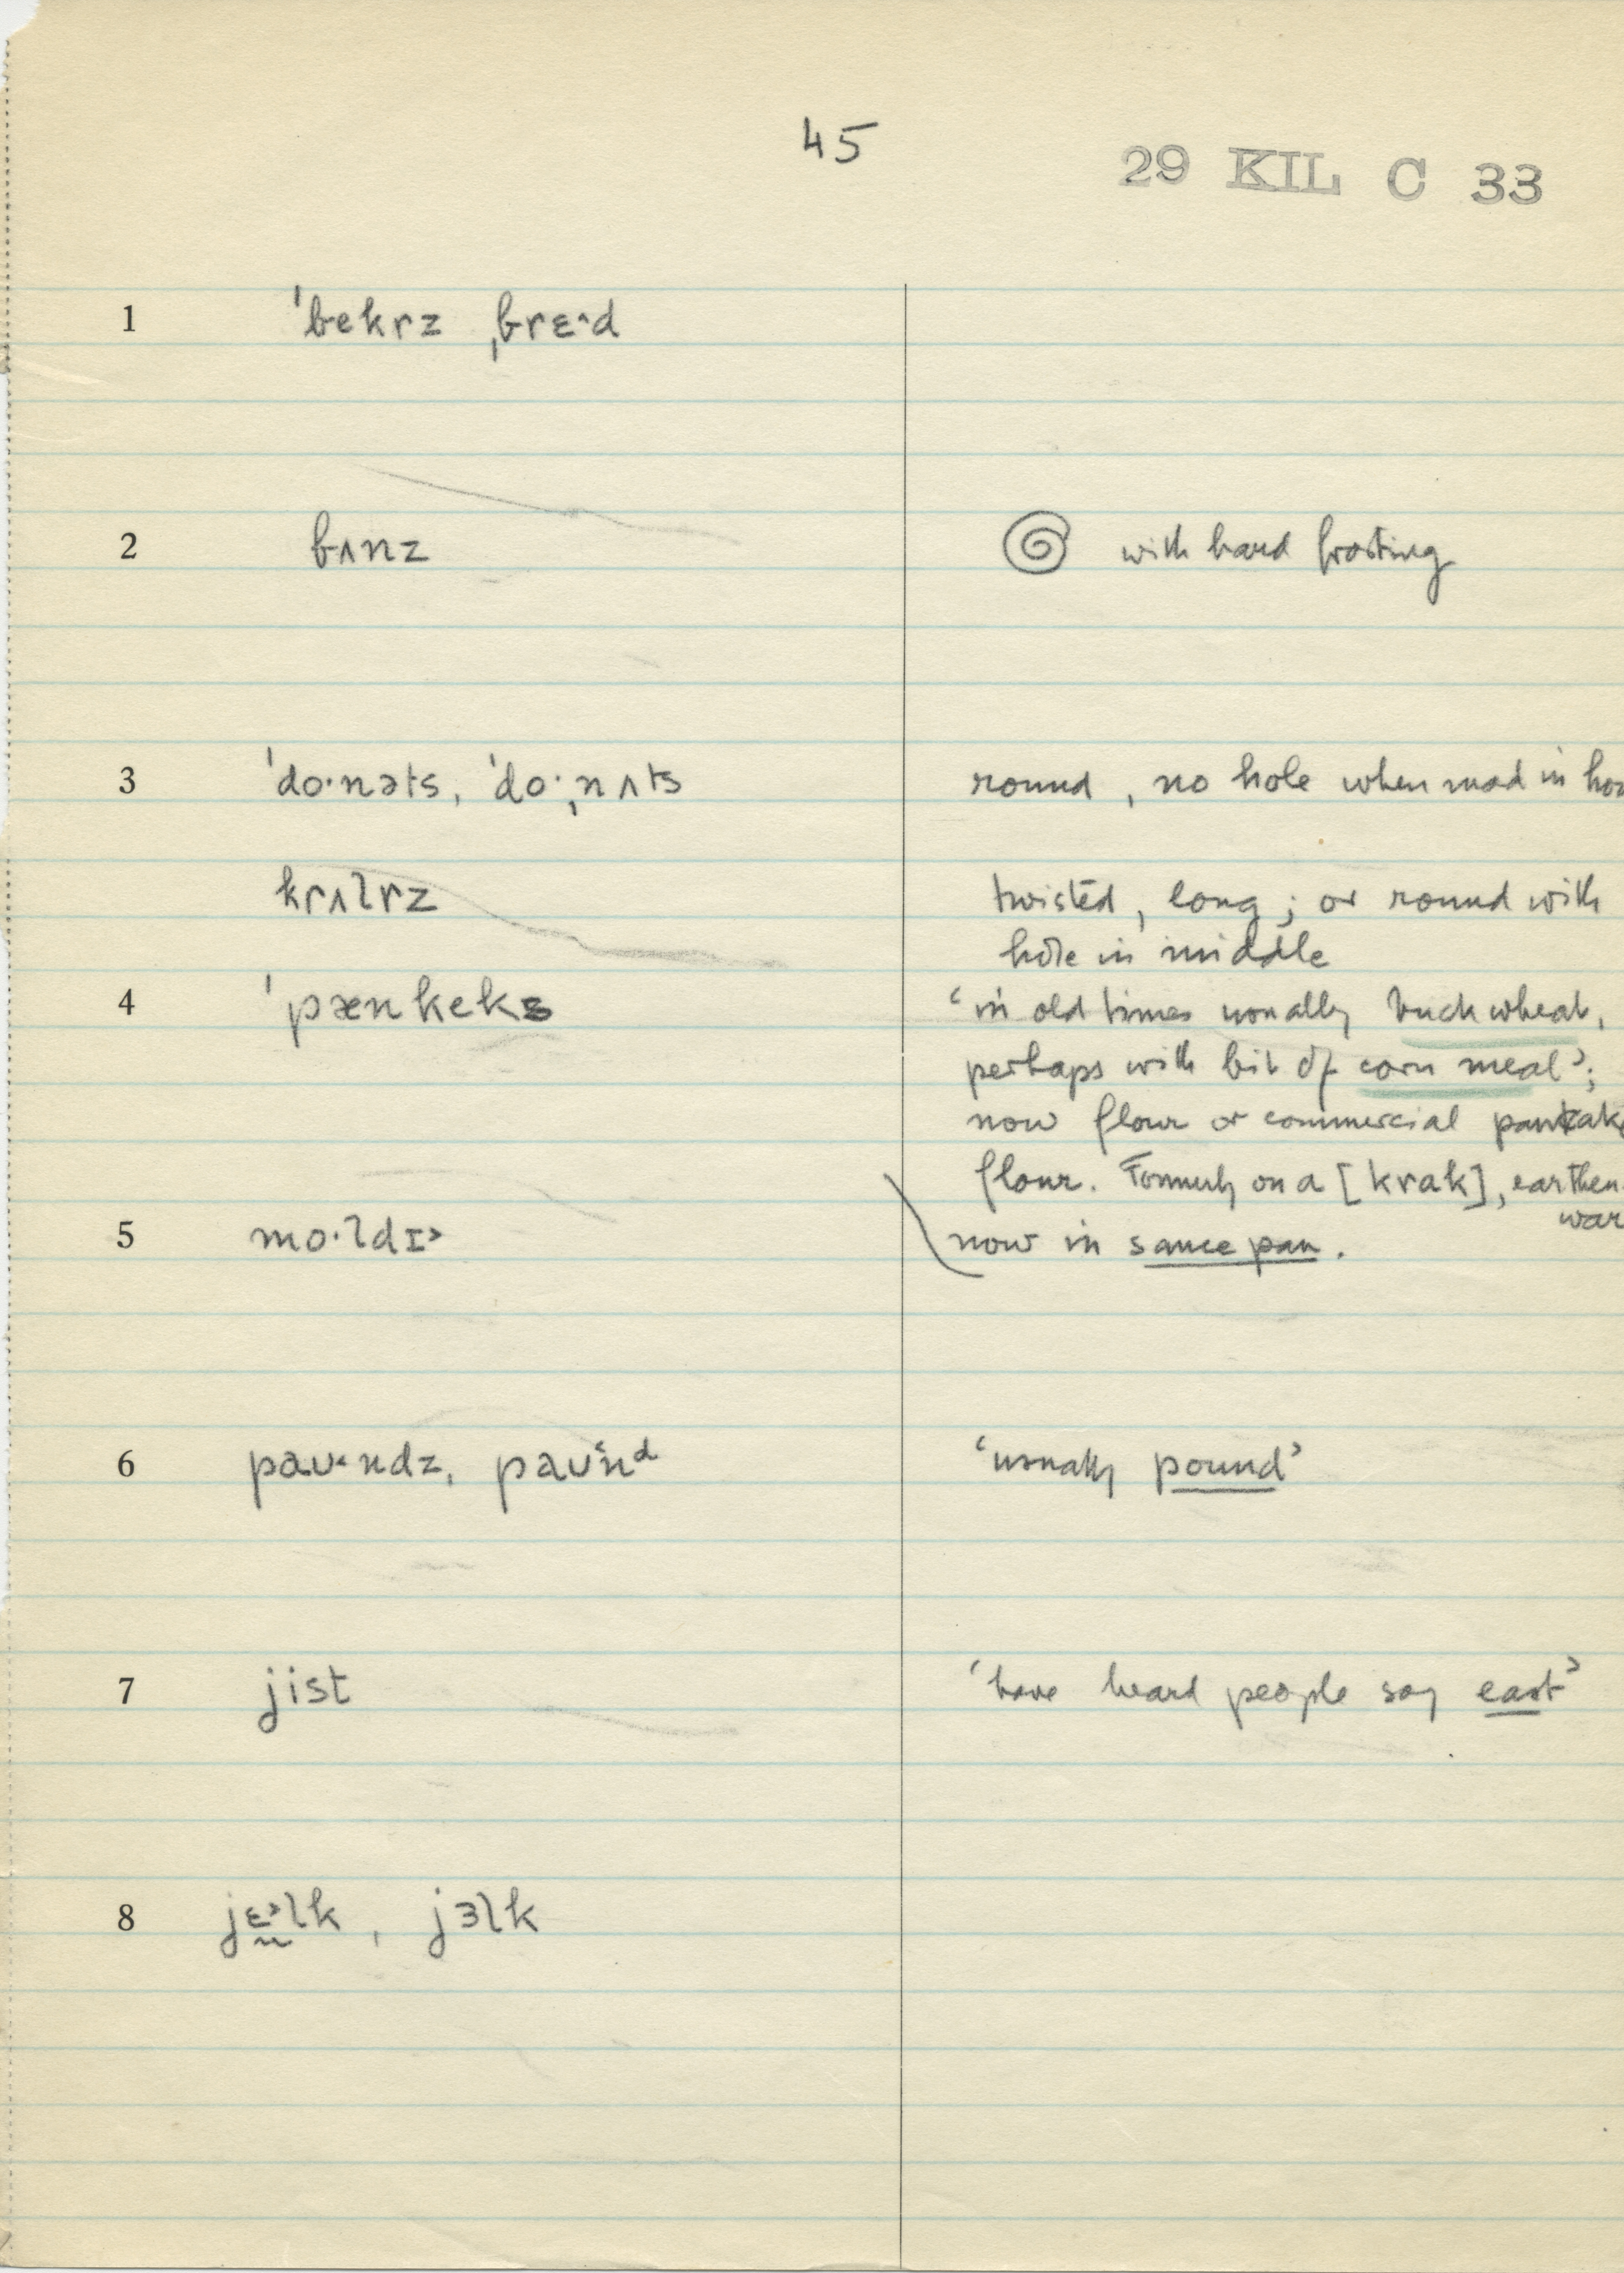 45
29 KIL C 33
1 ˈbekrz ˌbrɛ˄d
2 bʌnz with hard frosting
3 ˈdo·nəts, ˈdo·ˌnʌts round, no hole when mad in
krʌlrz twisted, long; or round with
hole in middle
4 ˈpænkeks ‘in old times usually buckwheat,
perhaps with bit of corn meal’;
now flour or commercial
flour. Formerly on a [krak], earthen
5 mo·ldɪ˃ now in sauce pan.
6 paʊ˂ndz, paʊ˂nᵈ ‘usually pound’
7 jist ‘have heard people say east’
8 jɛ̰˃lk, jɜlk